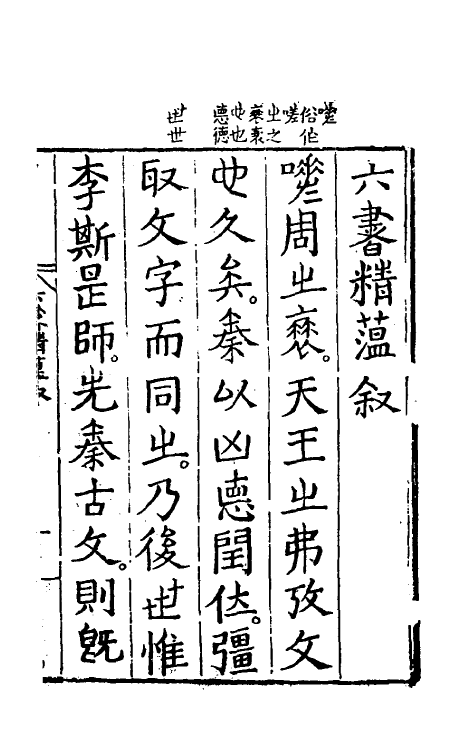 𡅕俗作嗟㞢之
𧜏衰也也
悳德
丗世
六書精蘊叙
嗟周㞢衰。天王㞢弗攷文
也久矣。秦以凶悳閏位。彊
取文字而同㞢。乃後世惟
李斯是師。先秦古文。則旣
六書精蘊叙